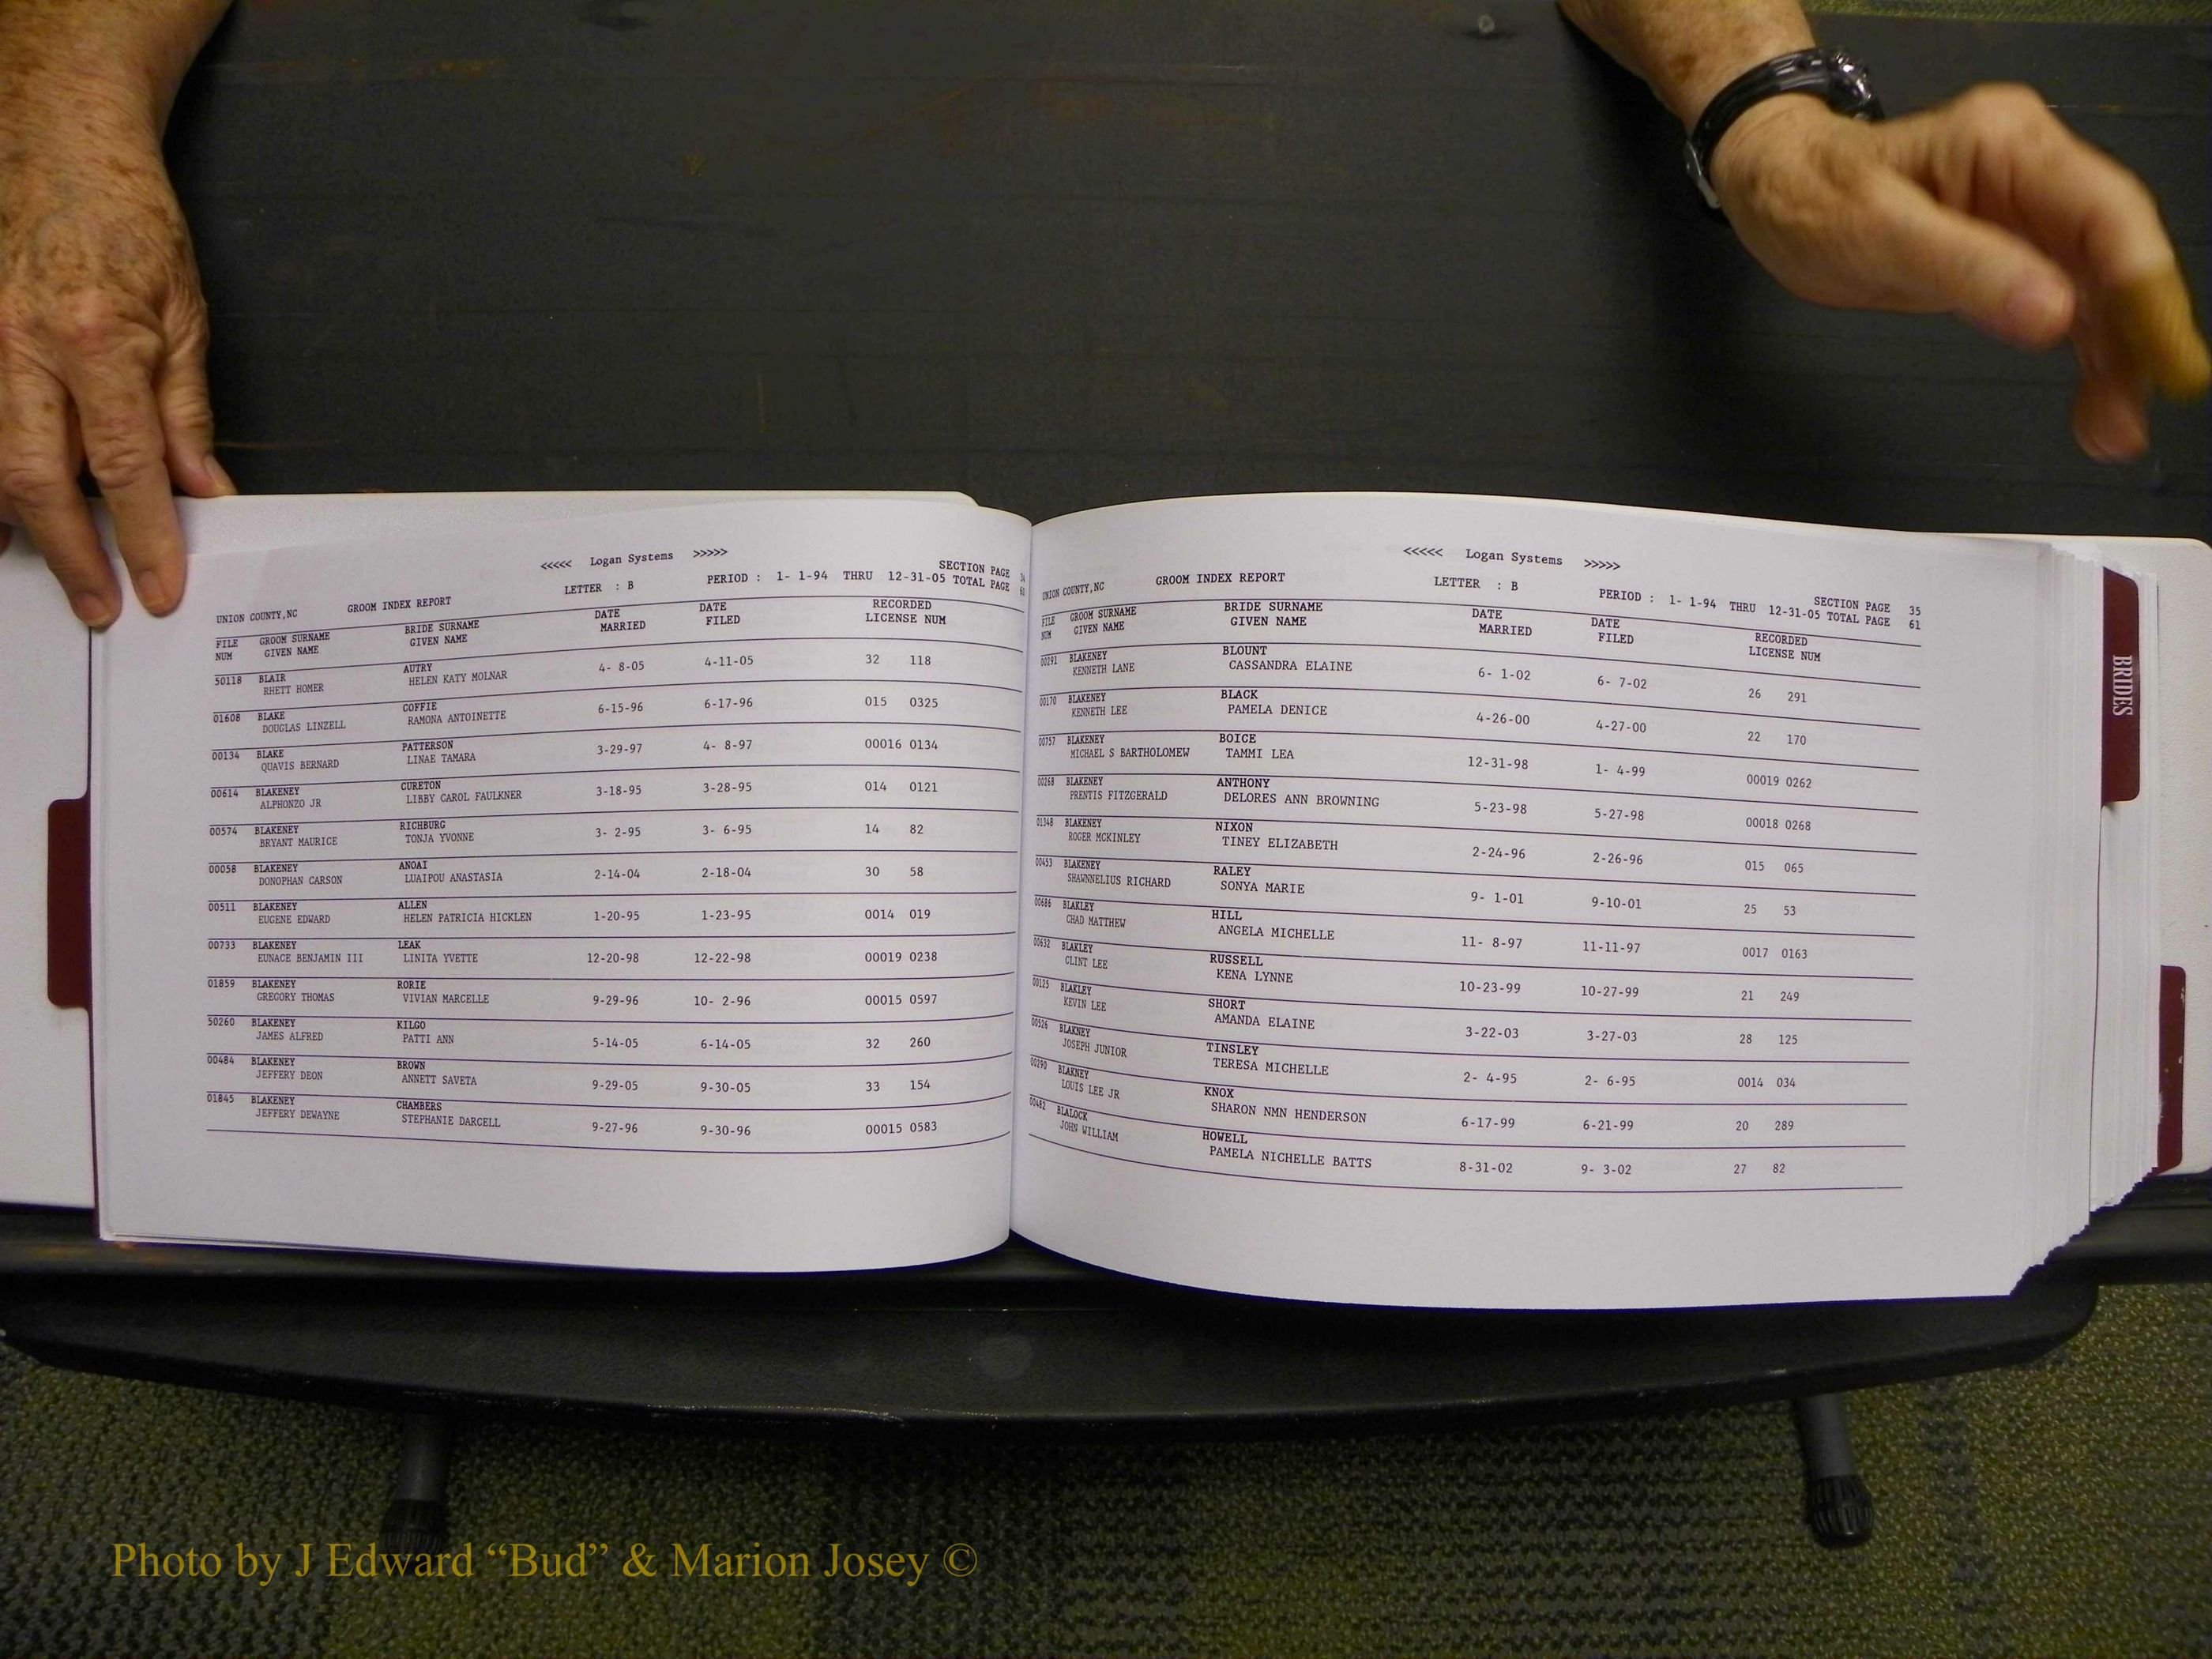 <<<<< Logan Systems >>>>>
SECTION PAGE 34
LETTER : B PERIOD : 1- 1-94 THRU 12-31-05 TOTAL PAGE 60
UNION COUNTY,NC GROOM INDEX REPORT
FILE GROOM SURNAME BRIDE SURNAME DATE DATE RECORDED
NUM GIVEN NAME GIVEN NAME MARRIED FILED LICENSE NUM
50118 BLAIR AUTRY 4- 8-05 4-11-05 32 118
RHETT HOMER HELEN KATY MOLNAR
01608 BLAKE COFFIE 6-15-96 6-17-96 015 0325
DOUGLAS LINZELL RAMONA ANTOINETTE
00134 BLAKE PATTERSON 3-29-97 4- 8-97 00016 0134
QUAVIS BERNARD LINAE TAMARA
00614 BLAKENEY CURETON 3-18-95 3-28-95 014 0121
ALPHONZO JR LIBBY CAROL FAULKNER
00574 BLAKENEY RICHBURG 3- 2-95 3- 6-95 14 82
BRYANT MAURICE TONJA YVONNE
00058 BLAKENEY ANOAI 2-14-04 2-18-04 30 58
DONOPHAN CARSON LUAIPOU ANASTASIA
00511 BLAKENEY ALLEN 1-20-95 1-23-95 0014 019
EUGENE EDWARD HELEN PATRICIA HICKLEN
00733 BLAKENEY LEAK 12-20-98 12-22-98 00019 0238
EUNACE BENJAMIN III LINITA YVETTE
01859 BLAKENEY RORIE 9-29-96 10- 2-96 00015 0597
GREGORY THOMAS VIVIAN MARCELLE
50260 BLAKENEY KILGO 5-14-05 6-14-05 32 260
JAMES ALFRED PATTI ANN
00484 BLAKENEY BROWN 9-29-05 9-30-05 33 154
JEFFERY DEON ANNETT SAVETA
01845 BLAKENEY CHAMBERS 9-27-96 9-30-96 00015 0583
JEFFERY DEWAYNE STEPHANIE DARCELL
<<<<< Logan Systems >>>>>
UNION COUNTY,NC GROOM INDEX REPORT LETTER : B SECTION PAGE 35
PERIOD : 1- 1-94 THRU 12-31-05 TOTAL PAGE 61
FILE GROOM SURNAME BRIDE SURNAME DATE DATE RECORDED
NUM GIVEN NAME GIVEN NAME MARRIED FILED LICENSE NUM
00291 BLAKENEY BLOUNT 6- 1-02 6- 7-02 26 291
KENNETH LANE CASSANDRA ELAINE
00170 BLAKENEY BLACK 4-26-00 4-27-00 22 170
KENNETH LEE PAMELA DENICE
00757 BLAKENEY BOICE 12-31-98 1- 4-99 00019 0262
MICHAEL S BARTHOLOMEW TAMMI LEA
00268 BLAKENEY ANTHONY 5-23-98 5-27-98 00018 0268
PRENTIS FITZGERALD DELORES ANN BROWNING
01348 BLAKENEY NIXON 2-24-96 2-26-96 015 065
ROGER MCKINLEY TINEY ELIZABETH
00453 BLAKENEY RALEY 9- 1-01 9-10-01 25 53
SHAWNNELIUS RICHARD SONYA MARIE
00686 BLAKLEY HILL 11- 8-97 11-11-97 0017 0163
CHAD MATTHEW ANGELA MICHELLE
00632 BLAKLEY RUSSELL 10-23-99 10-27-99 21 249
CLINT LEE KENA LYNNE
00125 BLAKLEY SHORT 3-22-03 3-27-03 28 125
KEVIN LEE AMANDA ELAINE
00526 BLAKNEY TINSLEY 2- 4-95 2- 6-95 0014 034
JOSEPH JUNIOR TERESA MICHELLE
00290 BLAKNEY KNOX 6-17-99 6-21-99 20 289
LOUIS LEE JR SHARON NMN HENDERSON
00482 BLALOCK HOWELL 8-31-02 9- 3-02 27 82
JOHN WILLIAM PAMELA NICHELLE BATTS
BRIDES
Photo by J Edward “Bud” & Marion Josey ©